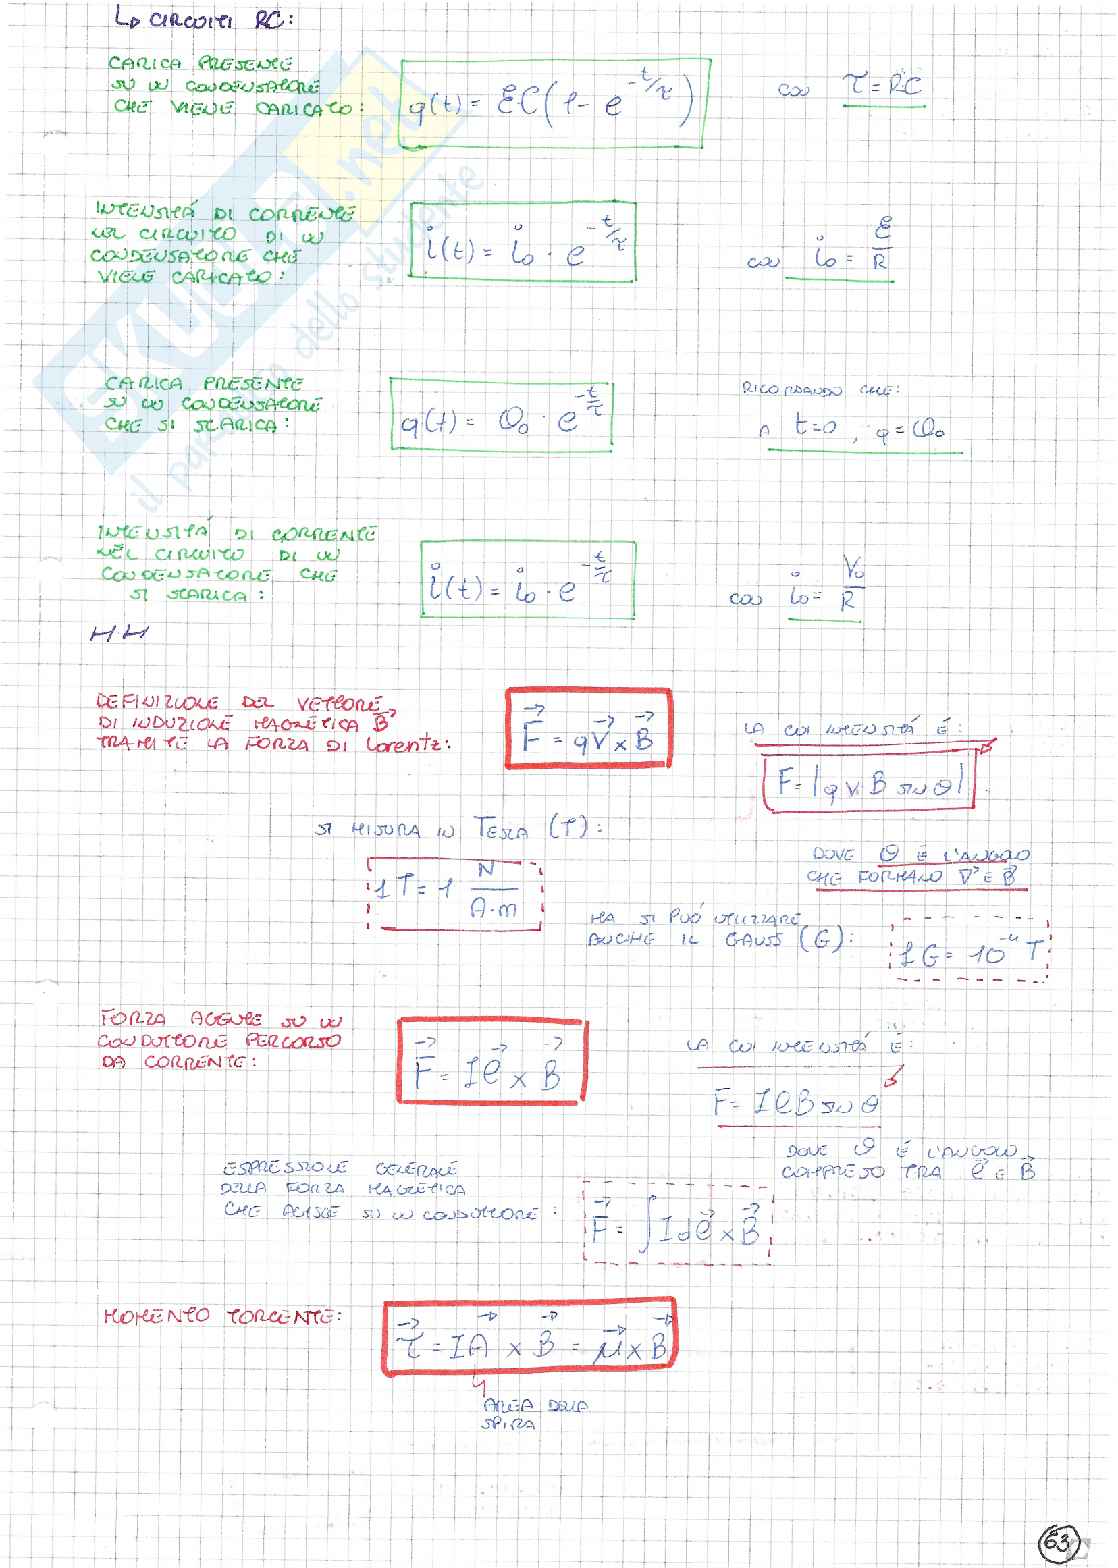 ↳ CIRCUITI RC:
CARICA PRESENTE
SU UN CONDENSATORE
CHE VIENE CARICATO: q(t) = ℰC(1 - e^{-t/τ}) con τ = RC
INTENSITÁ DI CORRENTE
NEL CIRCUITO DI UN
CONDENSATORE CHE
VIENE CARICATO: i(t) = i₀ · e^{-t/τ} con i₀ = ℰ/R
CARICA PRESENTE
SU UN CONDENSATORE
CHE SI SCARICA: q(t) = Q₀ · e^{-t/τ}
RICORDANDO CHE:
A t=0, q=Q₀
INTENSITÁ DI CORRENTE
NEL CIRCUITO DI UN
CONDENSATORE CHE
SI SCARICA: i(t) = i₀ · e^{-t/τ} con i₀ = V₀/R
DEFINIZIONE DEL VETTORE
DI INDUZIONE MAGNETICA B⃗
TRAMITE LA FORZA DI Lorentz: F⃗ = qV⃗ × B⃗
LA CUI INTENSITÁ É:
F = |q v B sin θ|
DOVE θ É L'ANGOLO
CHE FORMANO V⃗ E B⃗
SI MISURA IN TESLA (T):
1 T = 1 N/(A·m)
MA SI PUÓ UTILIZZARE
ANCHE IL GAUSS (G): 1 G = 10⁻⁴ T
FORZA AGENTE SU UN
CONDUTTORE PERCORSO
DA CORRENTE: F⃗ = Iℓ⃗ × B⃗
LA CUI INTENSITÁ É:
F = IℓB sin θ
DOVE θ É L'ANGOLO
COMPRESO TRA ℓ⃗ E B⃗
ESPRESSIONE GENERALE
DELLA FORZA MAGNETICA
CHE AGISCE SU UN CONDUTTORE: F⃗ = ∫ I dℓ⃗ × B⃗
MOMENTO TORCENTE: τ⃗ = IA⃗ × B⃗ = μ⃗ × B⃗
AREA DELLA
SPIRA
63
SKUOLA.net
il paradiso dello studente